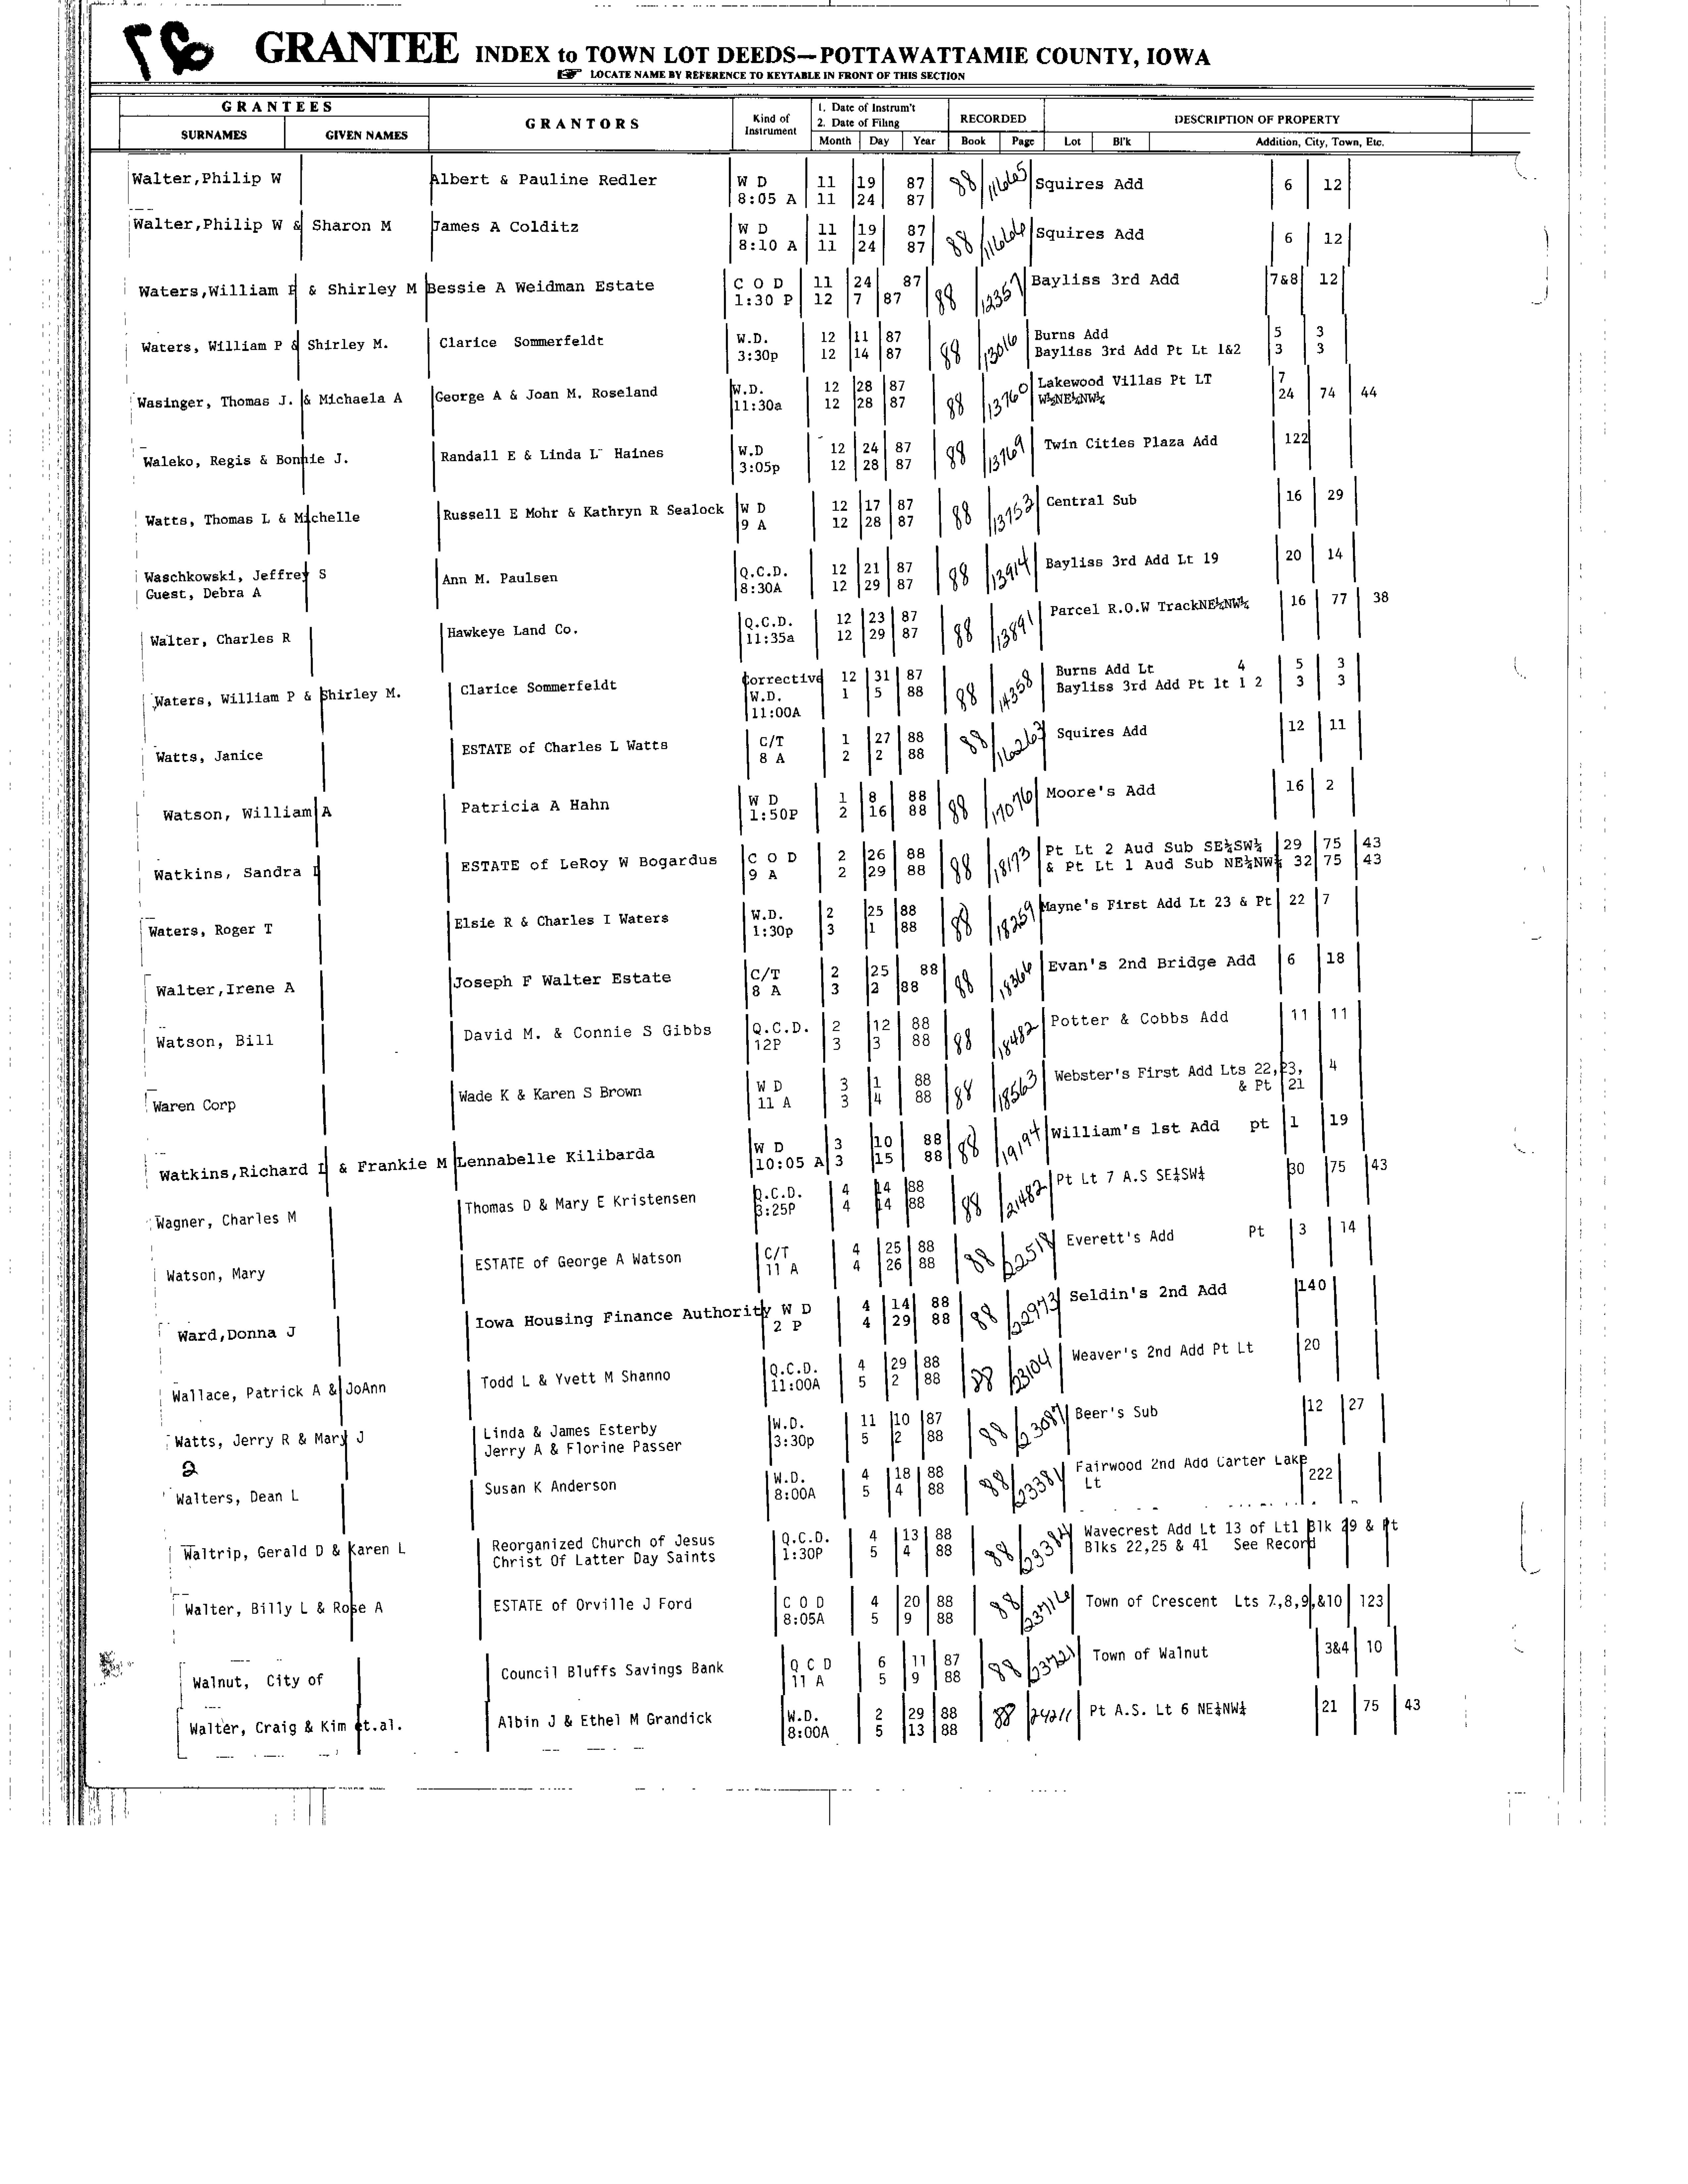 GRANTEE INDEX to TOWN LOT DEEDS—POTTAWATTAMIE COUNTY, IOWA
☞ LOCATE NAME BY REFERENCE TO KEYTABLE IN FRONT OF THIS SECTION
GRANTEES GRANTORS Kind of Instrument 1. Date of Instrum't 2. Date of Filing RECORDED DESCRIPTION OF PROPERTY
SURNAMES GIVEN NAMES Month Day Year Book Page Lot Bl'k Addition, City, Town, Etc.
Walter,Philip W Albert & Pauline Redler W D 11 19 87 88 11665 Squires Add 6 12
8:05 A 11 24 87
Walter,Philip W & Sharon M James A Colditz W D 11 19 87 88 11666 Squires Add 6 12
8:10 A 11 24 87
Waters,William P & Shirley M Bessie A Weidman Estate C O D 11 24 87 88 12357 Bayliss 3rd Add 7&8 12
1:30 P 12 7 87
Waters, William P & Shirley M. Clarice Sommerfeldt W.D. 12 11 87 88 13016 Burns Add 5 3
3:30p 12 14 87 Bayliss 3rd Add Pt Lt 1&2 3 3
Wasinger, Thomas J. & Michaela A George A & Joan M. Roseland W.D. 12 28 87 88 13760 Lakewood Villas Pt LT 7
11:30a 12 28 87 W½NE¼NW¼ 24 74 44
Waleko, Regis & Bonnie J. Randall E & Linda L Haines W.D 12 24 87 88 13769 Twin Cities Plaza Add 122
3:05p 12 28 87
Watts, Thomas L & Michelle Russell E Mohr & Kathryn R Sealock W D 12 17 87 88 13753 Central Sub 16 29
9 A 12 28 87
Waschkowski, Jeffrey S Ann M. Paulsen Q.C.D. 12 21 87 88 13914 Bayliss 3rd Add Lt 19 20 14
Guest, Debra A 8:30A 12 29 87
Walter, Charles R Hawkeye Land Co. Q.C.D. 12 23 87 88 13891 Parcel R.O.W TrackNE¼NW¼ 16 77 38
11:35a 12 29 87
Waters, William P & Shirley M. Clarice Sommerfeldt Corrective 12 31 87 88 14358 Burns Add Lt 4 5 3
W.D. 1 5 88 Bayliss 3rd Add Pt lt 1 2 3 3
11:00A
Watts, Janice ESTATE of Charles L Watts C/T 1 27 88 88 16263 Squires Add 12 11
8 A 2 2 88
Watson, William A Patricia A Hahn W D 1 8 88 88 17076 Moore's Add 16 2
1:50P 2 16 88
Watkins, Sandra L ESTATE of LeRoy W Bogardus C O D 2 26 88 88 18173 Pt Lt 2 Aud Sub SE¼SW¼ 29 75 43
9 A 2 29 88 & Pt Lt 1 Aud Sub NE¼NW¼ 32 75 43
Waters, Roger T Elsie R & Charles I Waters W.D. 2 25 88 88 18259 Mayne's First Add Lt 23 & Pt 22 7
1:30p 3 1 88
Walter,Irene A Joseph F Walter Estate C/T 2 25 88 88 18366 Evan's 2nd Bridge Add 6 18
8 A 3 2 88
Watson, Bill David M. & Connie S Gibbs Q.C.D. 2 12 88 88 18482 Potter & Cobbs Add 11 11
12P 3 3 88
Waren Corp Wade K & Karen S Brown W D 3 1 88 88 18563 Webster's First Add Lts 22,23, 4
11 A 3 4 88 & Pt 21
Watkins,Richard L & Frankie M Lennabelle Kilibarda W D 3 10 88 88 19194 William's 1st Add pt 1 19
10:05 A 3 15 88
Wagner, Charles M Thomas D & Mary E Kristensen Q.C.D. 4 14 88 88 21482 Pt Lt 7 A.S SE¼SW¼ 30 75 43
3:25P 4 14 88
Watson, Mary ESTATE of George A Watson C/T 4 25 88 88 Everett's Add Pt 3 14
11 A 4 26 88
Ward,Donna J Iowa Housing Finance Authority W D 4 14 88 88 22973 Seldin's 2nd Add 140
2 P 4 29 88
Wallace, Patrick A & JoAnn Todd L & Yvett M Shanno Q.C.D. 4 29 88 88 23104 Weaver's 2nd Add Pt Lt 20
11:00A 5 2 88
Watts, Jerry R & Mary J Linda & James Esterby W.D. 11 10 87 88 23087 Beer's Sub 12 27
Jerry A & Florine Passer 3:30p 5 2 88
2
Walters, Dean L Susan K Anderson W.D. 4 18 88 88 23381 Fairwood 2nd Add Carter Lake
8:00A 5 4 88 Lt 222
Waltrip, Gerald D & Karen L Reorganized Church of Jesus Q.C.D. 4 13 88 88 23384 Wavecrest Add Lt 13 of Lt1 Blk 29 & Pt
Christ Of Latter Day Saints 1:30P 5 4 88 Blks 22,25 & 41 See Record
Walter, Billy L & Rose A ESTATE of Orville J Ford C O D 4 20 88 88 23716 Town of Crescent Lts 7,8,9,&10 123
8:05A 5 9 88
Walnut, City of Council Bluffs Savings Bank Q C D 6 11 87 88 23721 Town of Walnut 3&4 10
11 A 5 9 88
Walter, Craig & Kim et.al. Albin J & Ethel M Grandick W.D. 2 29 88 88 24211 Pt A.S. Lt 6 NE¼NW¼ 21 75 43
8:00A 5 13 88